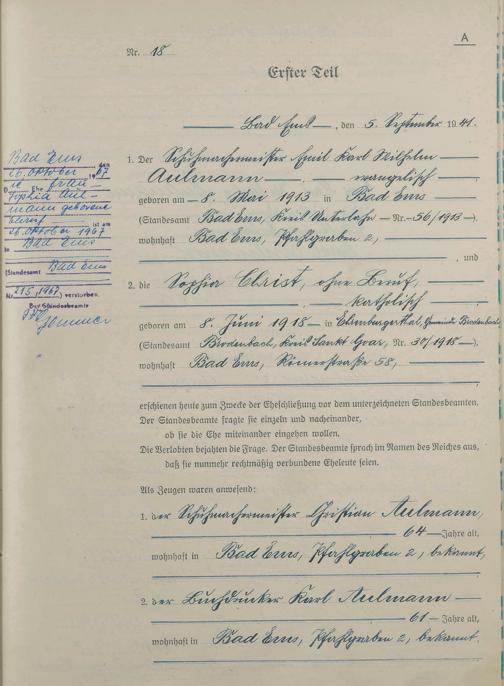 A
Nr. 18
Erster Teil
Bad Ems, den 5. September 1941.
1. Der Schuhmachermeister Emil Karl Wilhelm
Aulmann evangelisch
geboren am 8. Mai 1913 in Bad Ems
(Standesamt Bad Ems, Kreis Unterlahn Nr. 56/1913).
wohnhaft Bad Ems, Pfahlgraben 2,
, und
2. die Sophia Christ, ohne Beruf,
katholisch
geboren am 8. Juni 1918 in Ehrenburgerthal, Gemeinde Brodenbach,
(Standesamt Brodenbach, Kreis Sankt Goar, Nr. 30/1918),
wohnhaft Bad Ems, Römerstraße 58,
erschienen heute zum Zwecke der Eheschließung vor dem unterzeichneten Standesbeamten.
Der Standesbeamte fragte sie einzeln und nacheinander,
ob sie die Ehe miteinander eingehen wollen.
Die Verlobten bejahten die Frage. Der Standesbeamte sprach im Namen des Reiches aus,
daß sie nunmehr rechtmäßig verbundene Eheleute seien.
Als Zeugen waren anwesend:
1. der Schuhmachermeister Christian Aulmann,
64 Jahre alt,
wohnhaft in Bad Ems, Pfahlgraben 2, bekannt,
2. der Buchdrucker Karl Aulmann
61 Jahre alt,
wohnhaft in Bad Ems, Pfahlgraben 2, bekannt.
Bad Ems den
26. Oktober 1967
Die Ehefrau
Sophia Aul-
mann geborene
Christ ist am
26. Oktober 1967
in Bad Ems
(Standesamt Bad Ems
Nr. 215/1967) verstorben.
Der Standesbeamte